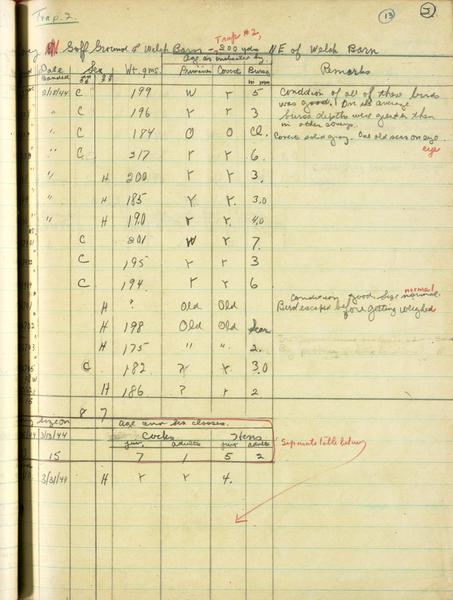 Trap. 2.
13
2
Trap #2,
Golf Grounds of Welsh Barn - 200 yds. NE of Welsh Barn
Age as indicated by
Date Banded Sex Wt. gms. Primaries Coverts Bursa mm Remarks
2/15/44 C 199 W r 5 Condition of all of these birds
was good. On the average
" C 196 r r 3 bursa depths were greater than
in other coveys.
" C 184 O O Cl. Coverts solid gray. One old scar on eye.
eye
" C 217 r r 6.
" H 200 r r 3.
" H 185 r r. 3.0
" H 190 r r. 4.0
C 201 W r 7.
C 195 r r 3
C 194. r r 6
normal
Condition good. Size normal.
H ? Old Old Bird escaped before getting weighed
H 198 Old Old Scar
H 175 " " 2.
C 182 ? r 3.0
H 186 ? r 2
8 7
Size on Age and sex classes.
Cocks Hens
juv. adults juv. adults
15 7 1 5 2
Separate table below
3/31/44 H r r 4.